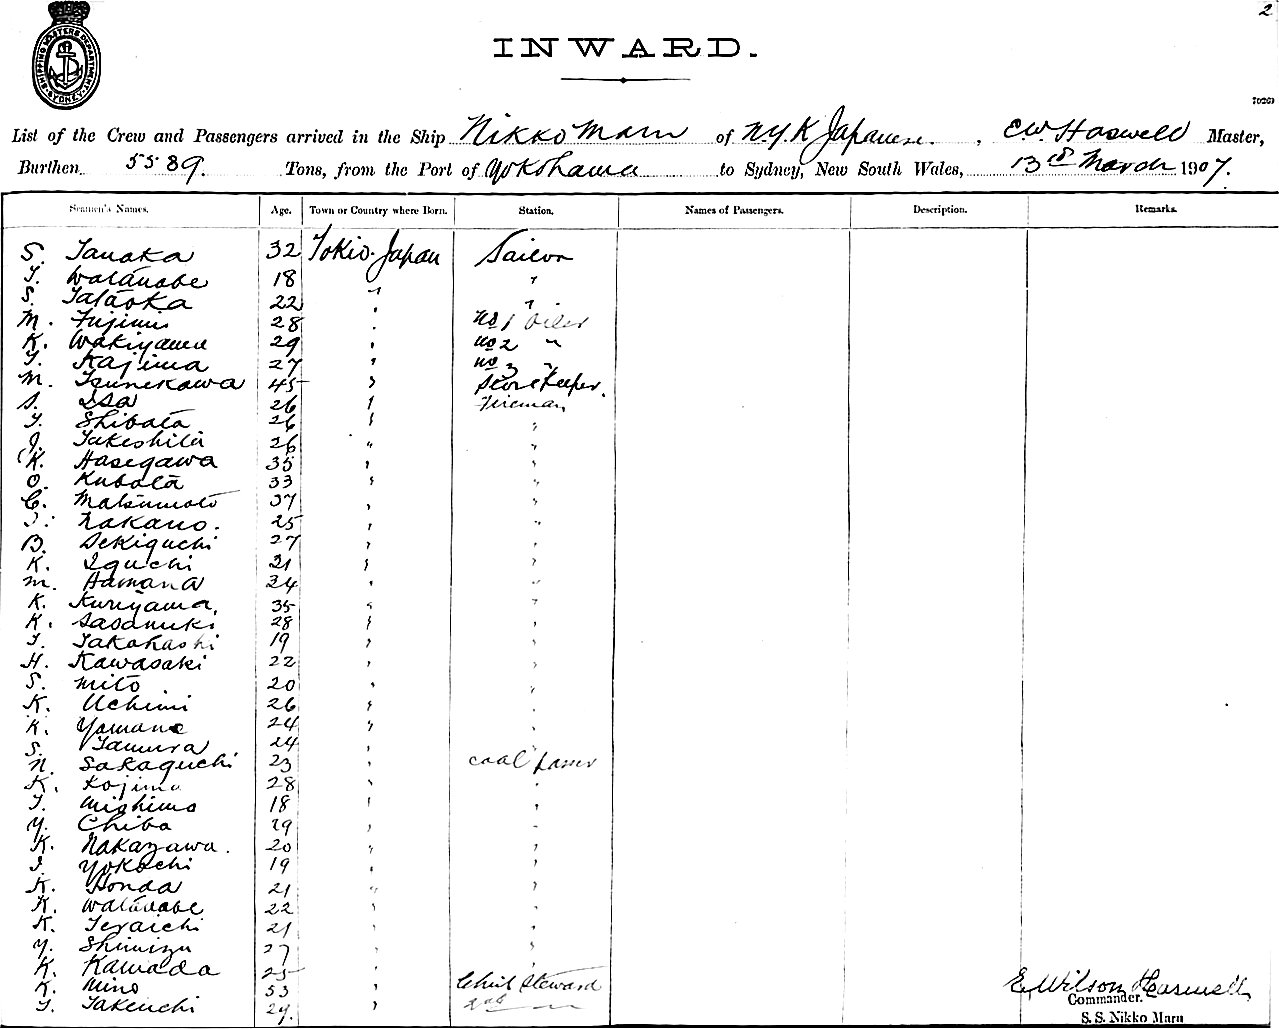 2
SHIPPING MASTERS DEPARTMENT
SYDNEY
INWARD.
List of the Crew and Passengers arrived in the Ship Nikko Maru of N.Y.K Japanese, C W Haswell Master,
Burthen 5539. Tons, from the Port of Yokohama to Sydney, New South Wales, 13th March 1907.
Seamen's Names. Age. Town or Country where Born. Station. Names of Passengers. Description. Remarks.
S. Tanaka 32 Tokio Japan Sailor
T. Watanabe 18 " "
S. Tataoka 22 " "
M. Fujimi 28 " No 1 Oiler
K. Wakiyama 29 " No 2 "
T. Kajima 27 " No 3 "
M. Tsunekawa 45 " Storekeeper.
S. Isa 26 " Fireman
T. Shibata 26 " "
J. Takeshita 26 " "
K. Hasegawa 35 " "
O. Kubota 33 " "
C. Matsumoto 37 " "
Nakano. 25 " "
B. Sekiguchi 27 " "
K. Iguchi 21 " "
M. Hamana 34 " "
K. Kuriyama, 35 " "
K. Sasanuki 28 " "
T. Takahashi 19 " "
H. Kawasaki 22 " "
S. Mito 20 " "
K. Uchimi 26 " "
K. Yamane 24 " "
S. Tamura 24 " "
N. Sakaguchi 23 " Coal passer
K. Kojima 28 " "
T. Mishima 18 " "
Y. Chiba 19 " "
K. Nakazawa. 20 " "
I. Yokochi 19 " "
K. Honda 21 " "
K. Watanabe 22 " "
K. Teraichi 21 " "
Y. Shimizu 27 " "
K. Kamada 25 " "
K. Mino 53 " Chief Steward
T. Takeuchi 29. " 2nd "
E. Wilson Haswell
Commander.
S. S. Nikko Maru